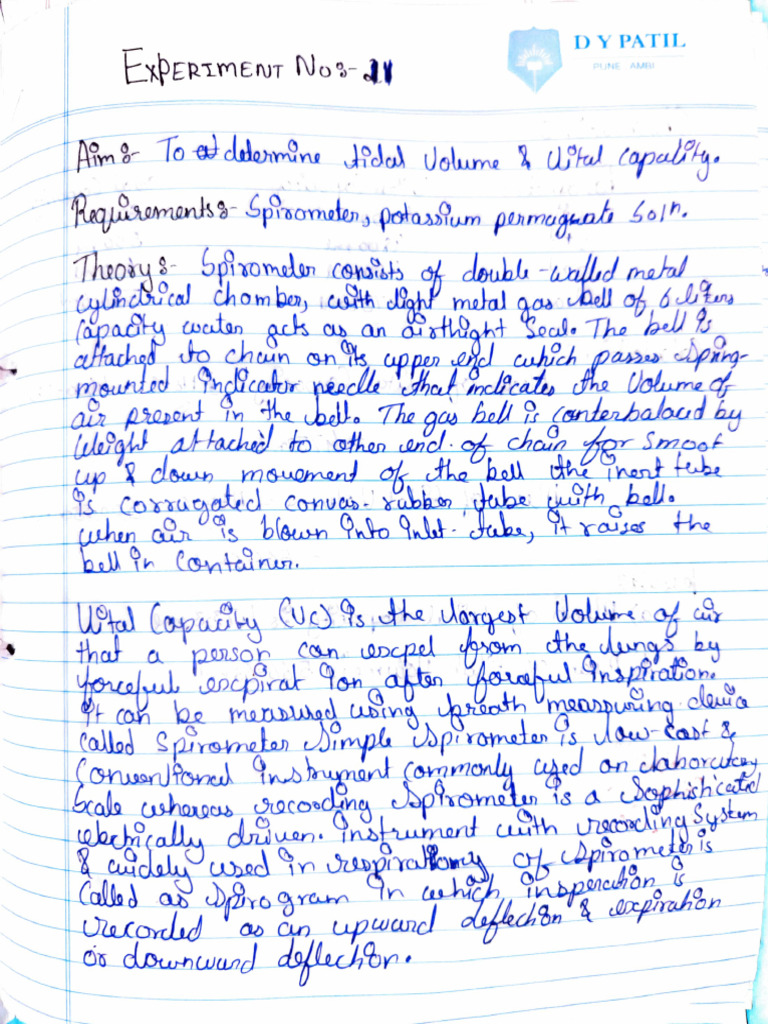 D Y PATIL
PUNE, AMBI
EXPERIMENT No:- 21
Aim:- To determine tidal volume & Vital capacity.
Requirements:- Spirometer, potassium permaguate Soln.
Theory:- Spirometer consists of double-walled metal
cylindrical chamber, with light metal gas bell of 6 liters
capacity water acts as an airthight Seal. The bell is
attached to chain on its upper end which passes Spring-
mounted indicator needle that indicates the Volume of
air present in the bell. The gas bell is conterbalaced by
Weight attached to other end of chain for smoot
up & down movement of the bell the inert tube
is corrugated convas-rubber tube with bell.
when air is blown into inlet-tube, it raises the
bell in Container.
Vital Capacity (VC) is the largest Volume of air
that a person can expel from the lungs by
forceful expirat ion after forceful inspiration.
it can be measured using breath meassuring device
called Spirometer Simple Spirometer is low-cost &
Conventional instrument commonly used on laboratory
Scale whereas recording Spirometer is a Sophisticated
electrically driven. instrument with recording System
& widely used in of Spirometer is
called as Spirogram in which insperation is
recorded as an upward deflection & expiration
or downward deflection.